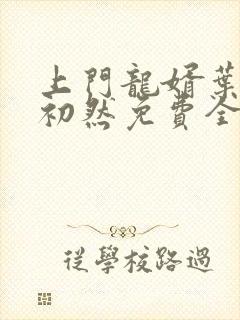 上門龍婿葉
初然免費全
從學校路過